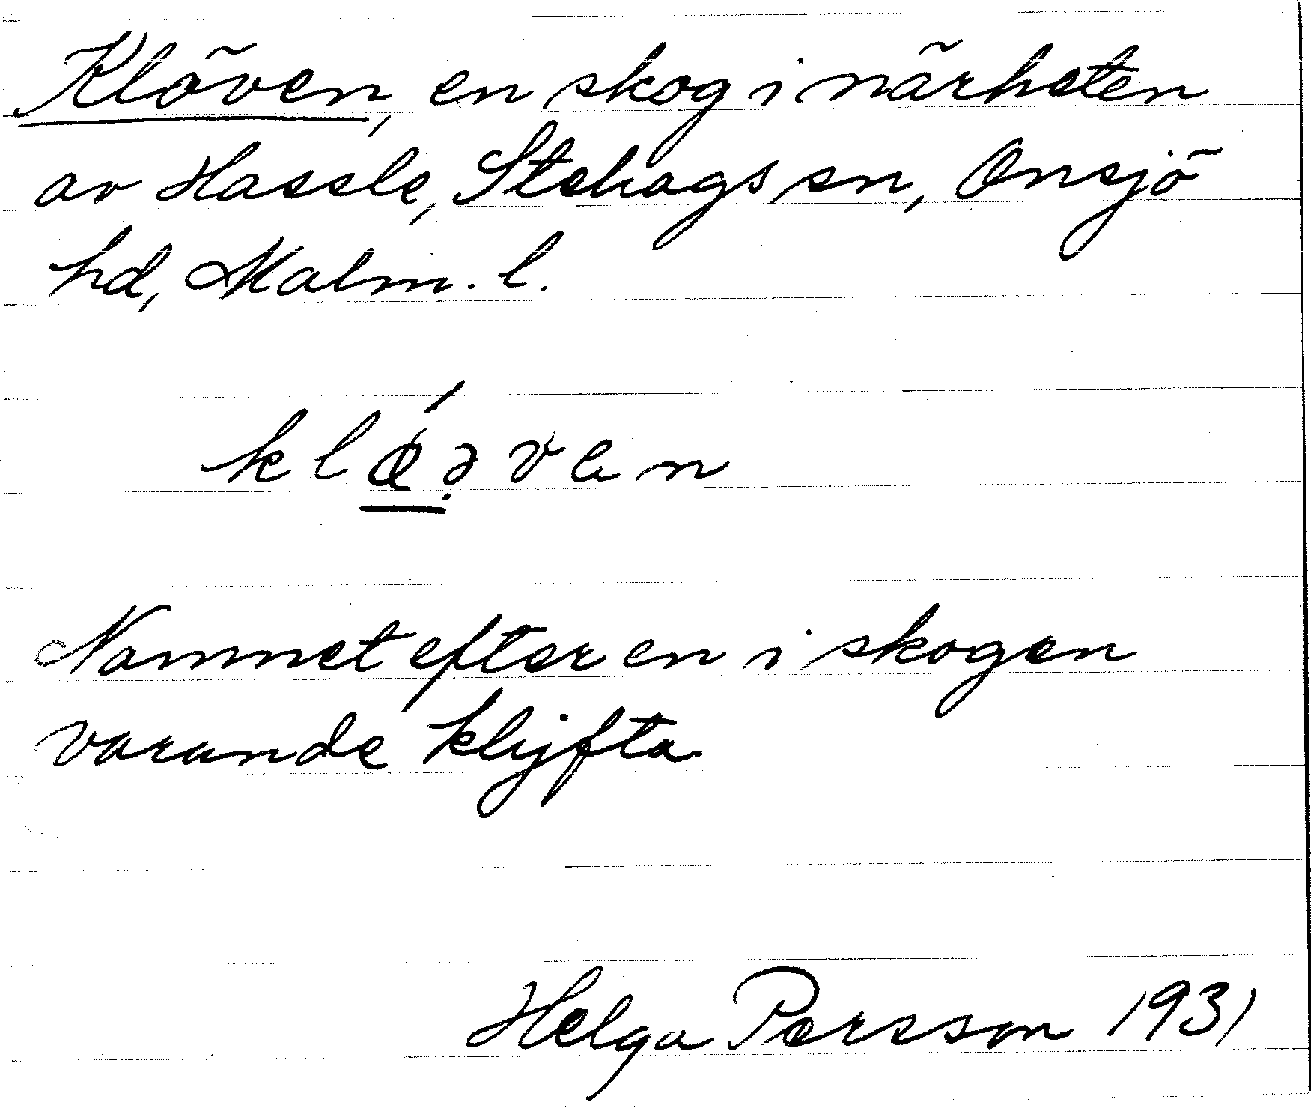 Klöven, en skog i närheten
av Hassle, Stehags sn, Onsjö
hd, Malm. l.
Namnet efter en i skogen
varande klyfta
Helga Persson 1931